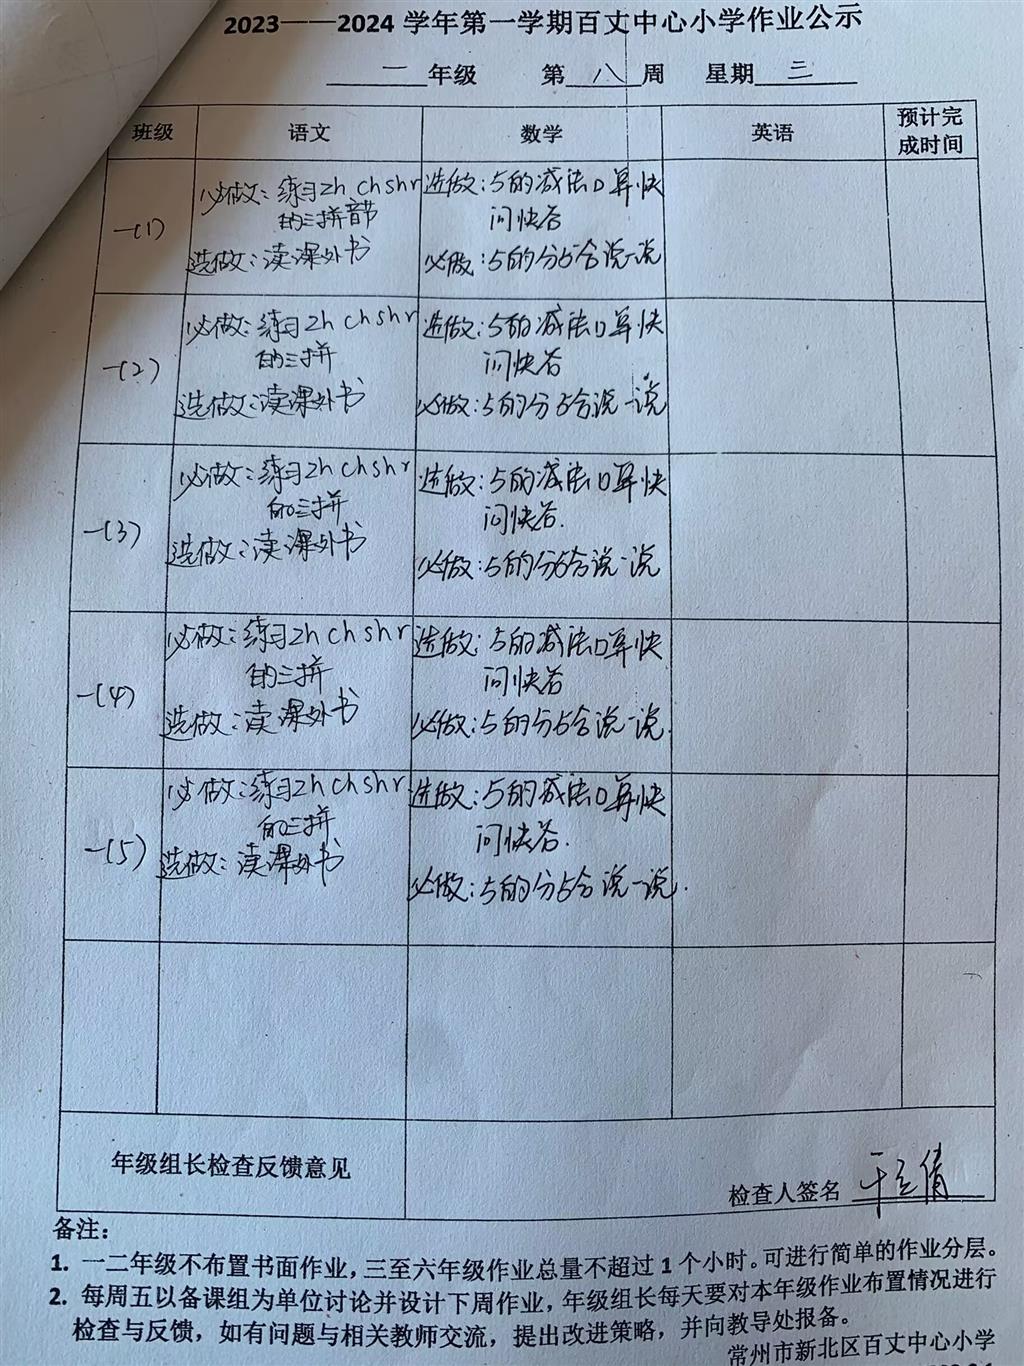 2023——2024 学年第一学期百丈中心小学作业公示
一 年级 第 八 周 星期 三
班级 语文 数学 英语 预计完
成时间
一(1) 必做：练习zh ch sh r
的三拼音节
选做：读课外书
选做：5的减法口算快
问快答
必做：5的分与合说一说
一(2) 必做：练习zh ch sh r
的三拼
选做：读课外书
选做：5的减法口算快
问快答
必做：5的分与合说一说
一(3) 必做：练习zh ch sh r
的三拼
选做：读课外书
选做：5的减法口算快
问快答.
必做：5的分与合说一说
一(4) 必做：练习zh ch sh r
的三拼
选做：读课外书
选做：5的减法口算快
问快答
必做：5的分与合说一说.
一(5) 必做：练习zh ch sh r.
的三拼
选做：读课外书
选做：5的减法口算快
问快答.
必做：5的分与合说一说.
年级组长检查反馈意见
检查人签名
备注：
1. 一二年级不布置书面作业，三至六年级作业总量不超过 1 个小时。可进行简单的作业分层。
2. 每周五以备课组为单位讨论并设计下周作业，年级组长每天要对本年级作业布置情况进行
检查与反馈，如有问题与相关教师交流，提出改进策略，并向教导处报备。
常州市新北区百丈中心小学